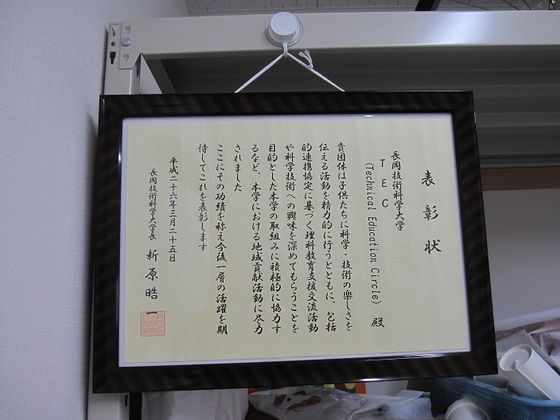 表彰状
長岡技術科学大学
TEC
(Technical Education Circle) 殿
貴団体は子供たちに科学・技術の楽しさを
伝える活動を精力的に行うとともに、包括
的連携協定に基づく理科教育支援交流活動
や科学技術への興味を深めてもらうことを
目的とした本学の取組みに積極的に協力す
るなど、本学における地域貢献活動に尽力
されました
ここにその功績を称え今後一層の活躍を期
待してこれを表彰します
平成二十六年三月二十五日
長岡技術科学大学長 新原晧一